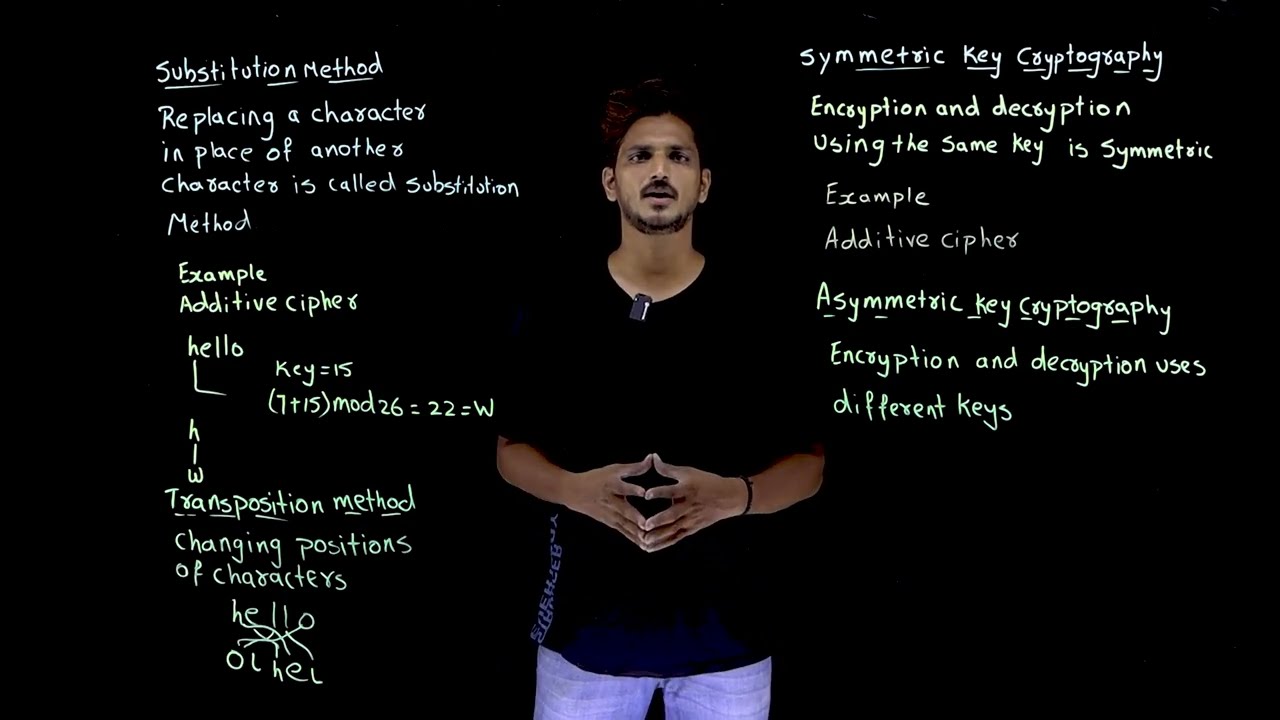 Substitution Method
Replacing a character
in place of another
character is called substitution
Method
Example
Additive cipher
hello
Key=15
(7+15)mod26=22=W
h
w
Transposition method
Changing positions
of characters
hello
olhel
Symmetric Key Cryptography
Encryption and decryption
using the same key is symmetric
Example
Additive cipher
Asymmetric key cryptography
Encryption and decryption uses
different keys